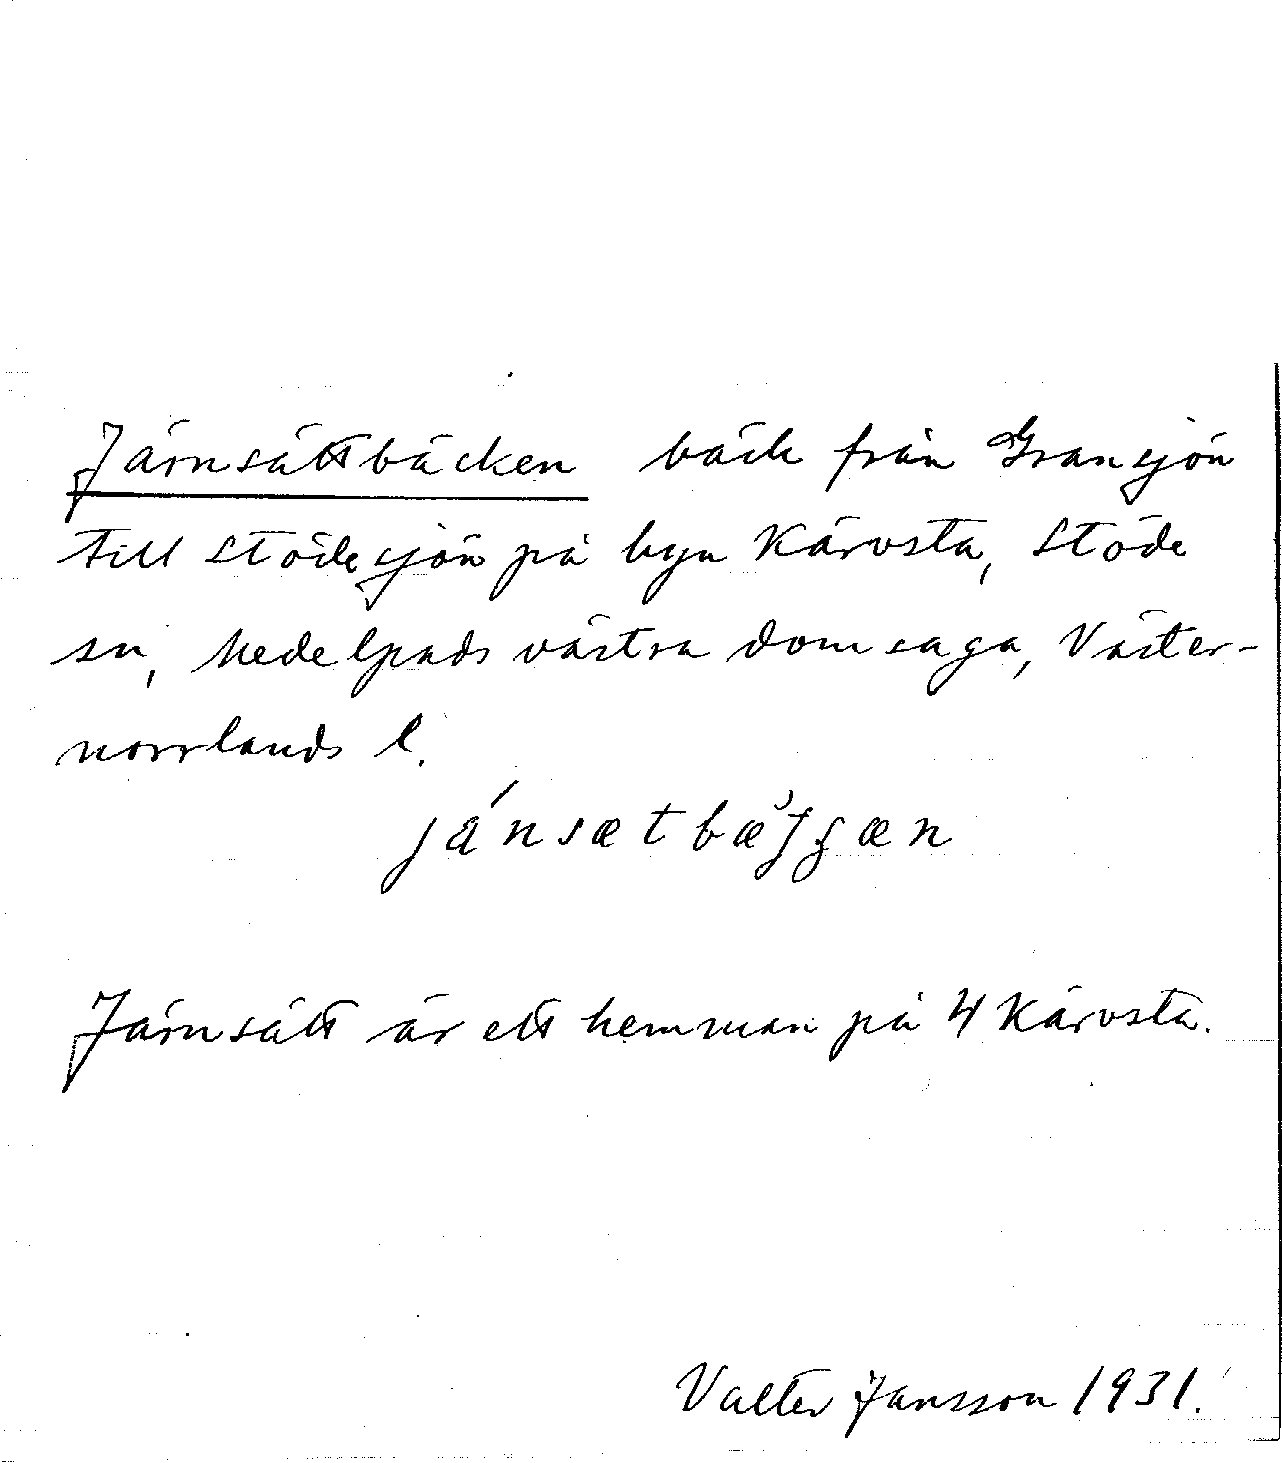 Järnsättbäcken bäck från Gransjön
till Stödesjön på byn Kärvsta, Stöde
sn, Medelpads västra domsaga, Väster-
norrlands l.
Järnsätt är ett hemman på 4 Kärvsta.
Valter Jansson 1931.